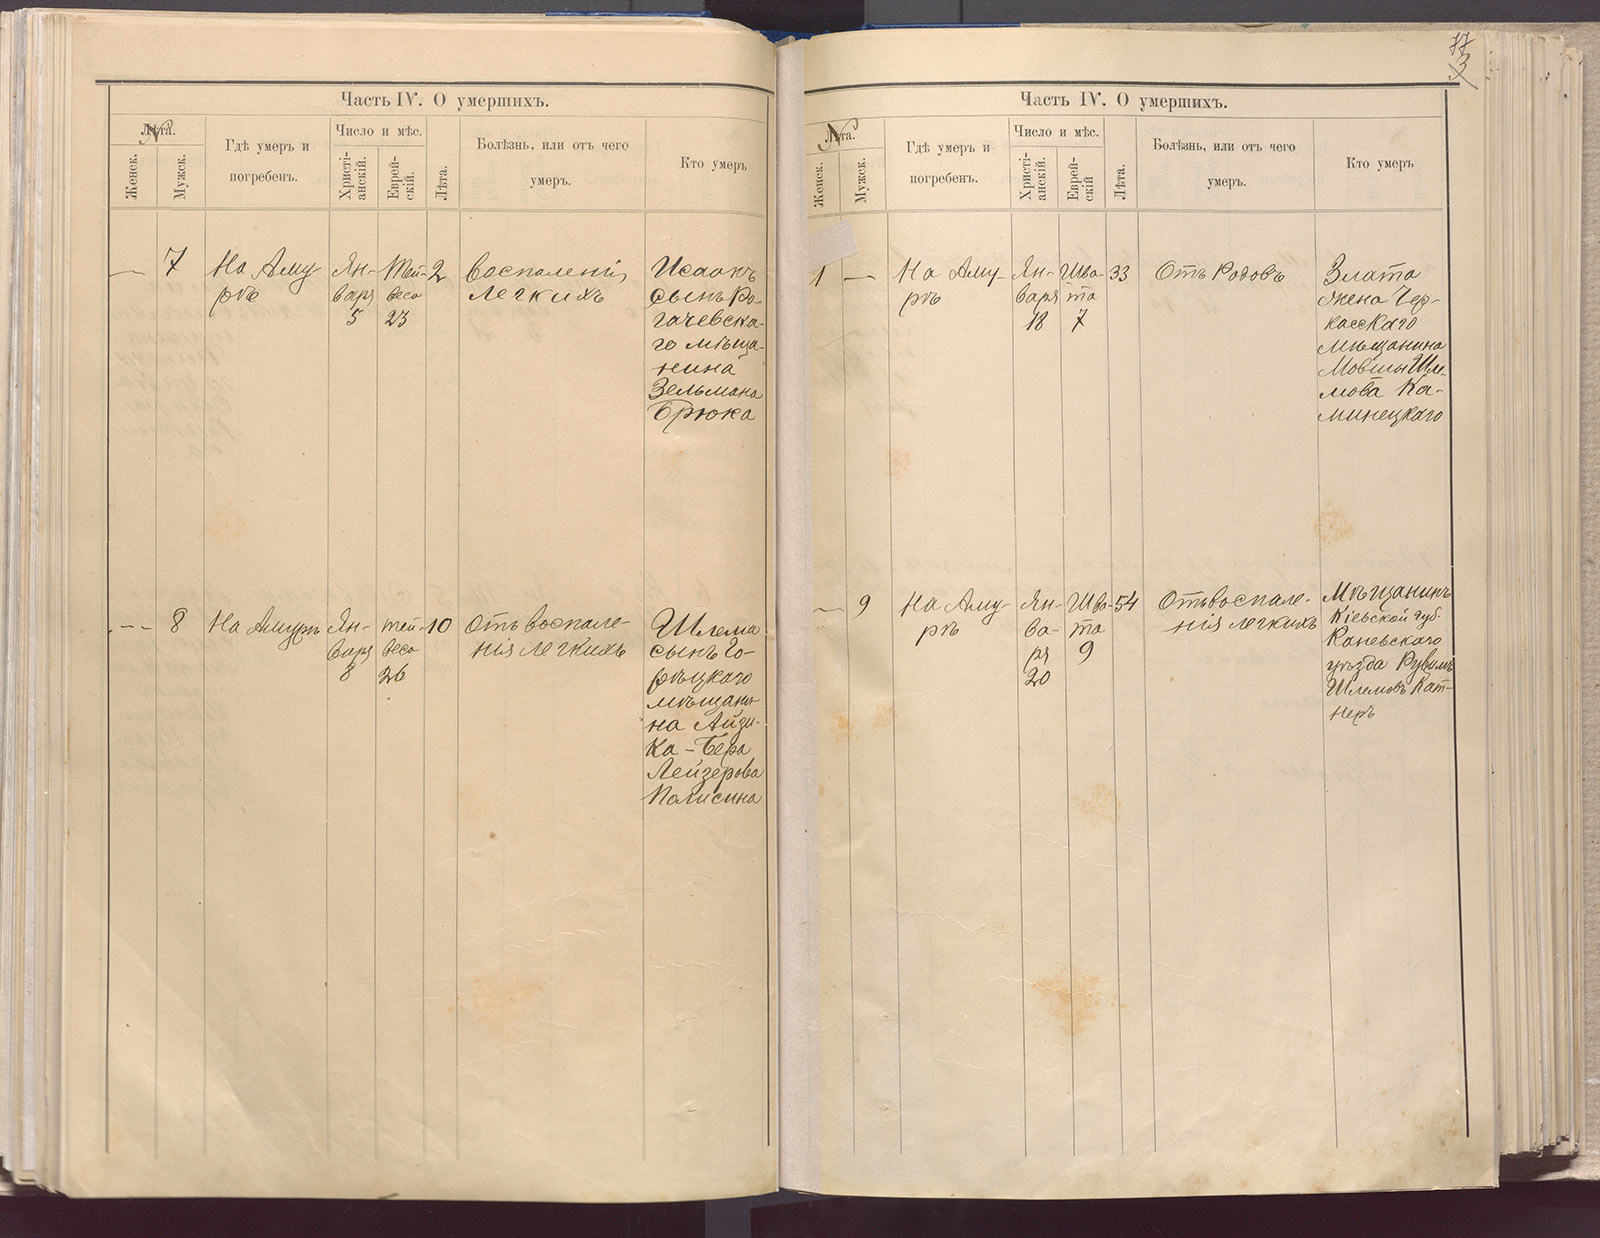 Часть IV. О умершихъ.
Лѣта.
N
Женск.
Мужск.
Гдѣ умеръ и
погребенъ.
Число и мѣс.
Христі-
анскій.
Еврей-
скій.
Лѣта.
Болѣзнь, или отъ чего
умеръ.
Кто умеръ
—
7
На Аму-
рѣ
Ян-
варя
5
Тей-
веса
23
2
Воспаленія
легкихъ
Исаакъ
сынъ Ро-
гачевска-
го мѣща-
нина
Зельмана
Брюка
—
8
На Амурѣ
Ян-
варя
8
Тей-
веса
26
10
Отъ воспале-
нія легкихъ
Шлема
сынъ Го-
рѣцкаго
мѣщани-
на Айзи-
ка-Бера
Лейзерова
Полисина
77
3
Часть IV. О умершихъ.
Лѣта.
N
Женск.
Мужск.
Гдѣ умеръ и
погребенъ.
Число и мѣс.
Христі-
анскій.
Еврей-
скій
Лѣта.
Болѣзнь, или отъ чего
умеръ.
Кто умеръ
1
—
На Аму-
рѣ
Ян-
варя
18
Шва-
та
7
33
Отъ Родовъ
Злата
жена Чер-
касскаго
мѣщанина
Мовши Шле-
мова Ка-
минецкаго
—
9
На Аму-
рѣ
Ян-
ва-
ря
20
Шва-
та
9
54
Отъ воспале-
нія легкихъ
Мѣщанинъ
Кіевской губ.
Каневскаго
уѣзда Рувимъ
Шлемовъ Кат-
неръ